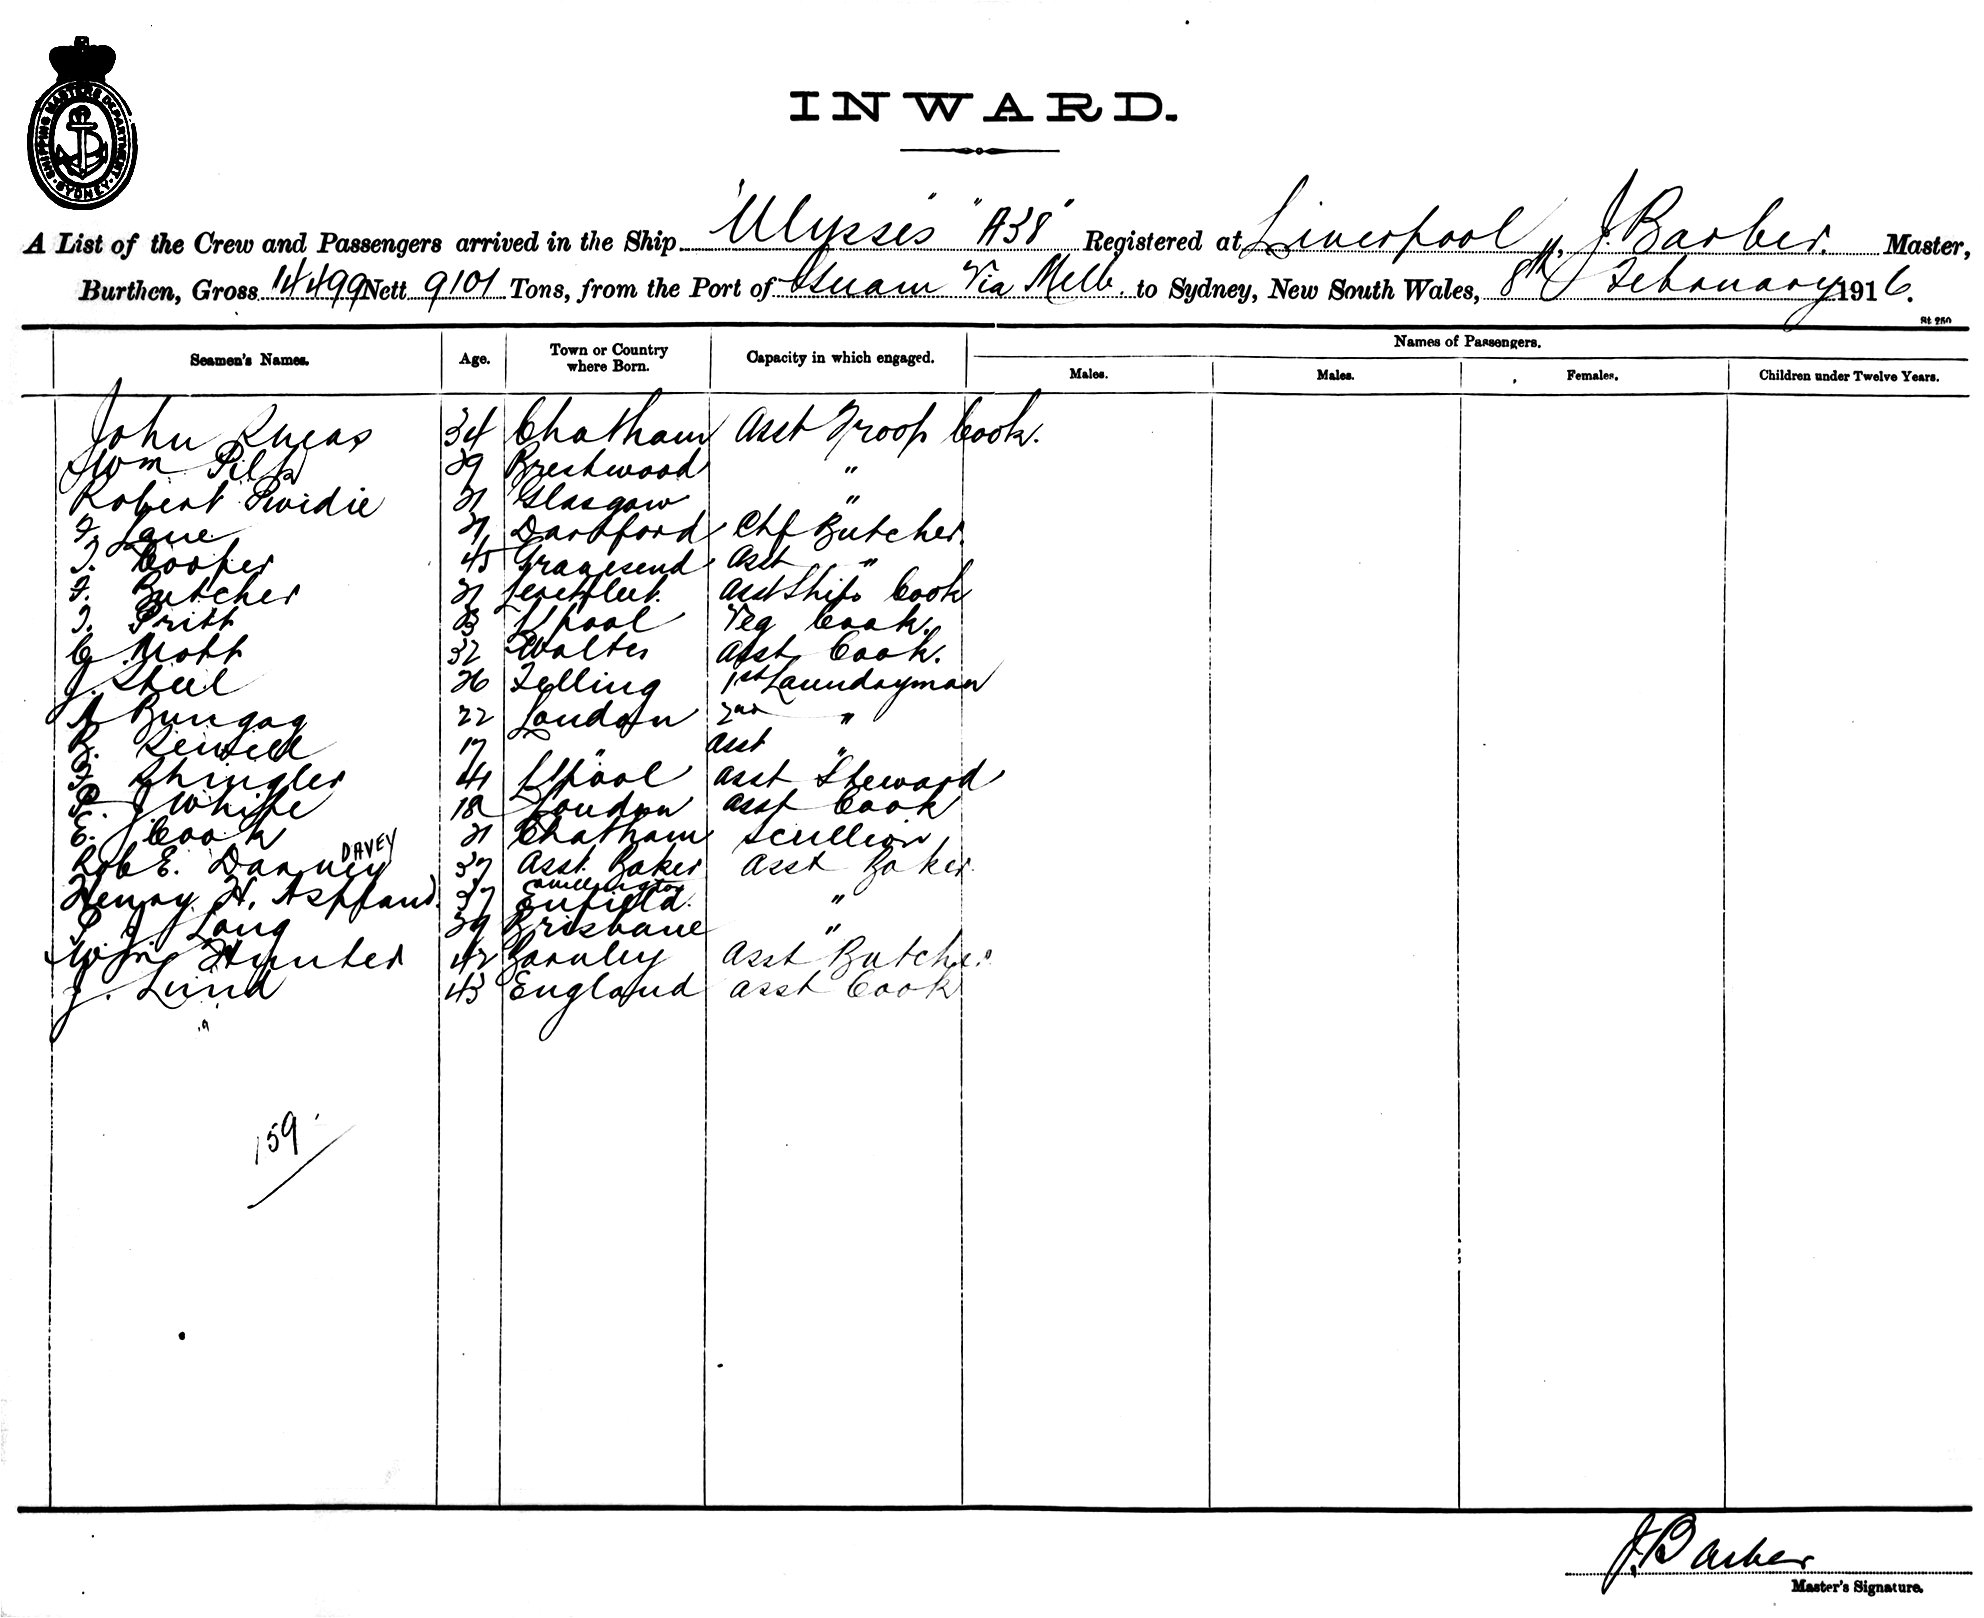 SHIPPING MASTERS DEPARTMENT SYDNEY
INWARD.
A List of the Crew and Passengers arrived in the Ship "Ulysses" "A38" Registered at Liverpool, J. Barber. Master,
Burthen, Gross 14499 Nett 9101 Tons, from the Port of Via Melb. to Sydney, New South Wales, 8th February 1916.
St 250
Seamen's Names. Age. Town or Country where Born. Capacity in which engaged. Names of Passengers.
Males. Males. Females. Children under Twelve Years.
John Lucas 34 Chatham Asst Troop Cook.
Wm 39 "
Robert 21 Glasgow "
F. Lane 21 Dartford Chf Butcher.
T. Cooper 45 Gravesend Asst "
F. Butcher 21 Asst Ships Cook
T. Pritt L'pool Veg Cook.
C. Mott 32 Asst Cook.
J. Steel 26 Felling 1st Laundryman
A 22 London 2nd "
R. 17 " Asst "
F. Shingler 41 L'pool Asst Steward
P. J. White 18 London Asst Cook
E. Cook 21 Chatham Scullion
DAVEY
Rob E. 37 Asst. Baker Asst Baker.
Henry H. 37 Enfield. "
P. J. Long 39 Brisbane "
Wm Hunter 42 Asst Butcher.
J. Lund 43 England Asst Cook
159
J. Barber
Master's Signature.